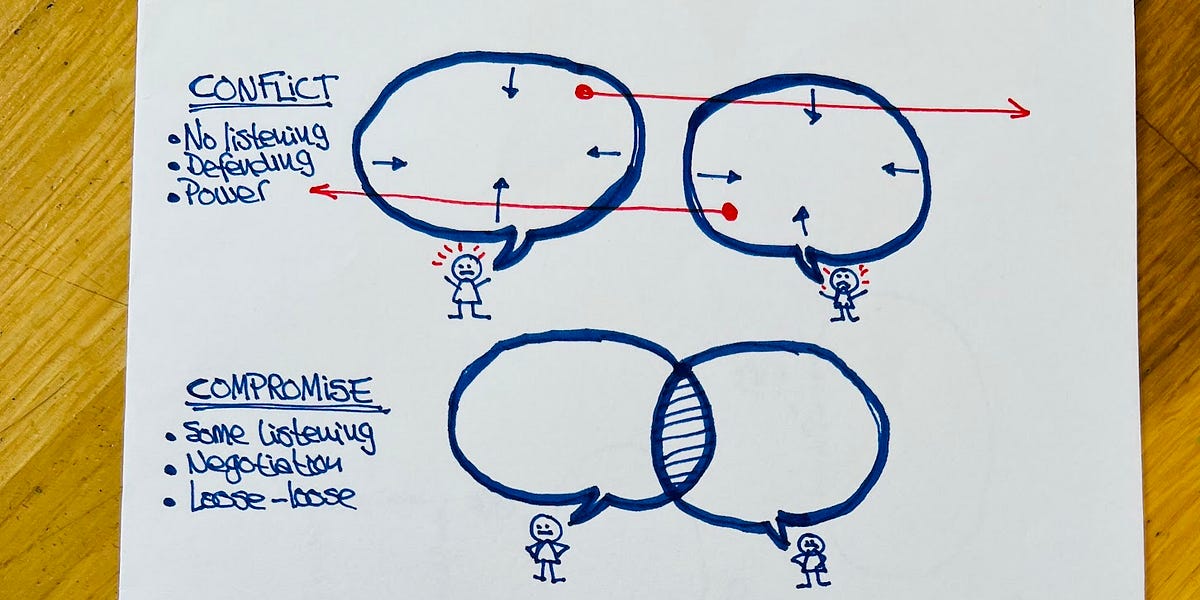 CONFLICT
• No listening
• Defending
• Power
COMPROMISE
• Some listening
• Negotiation
• Loose-loose